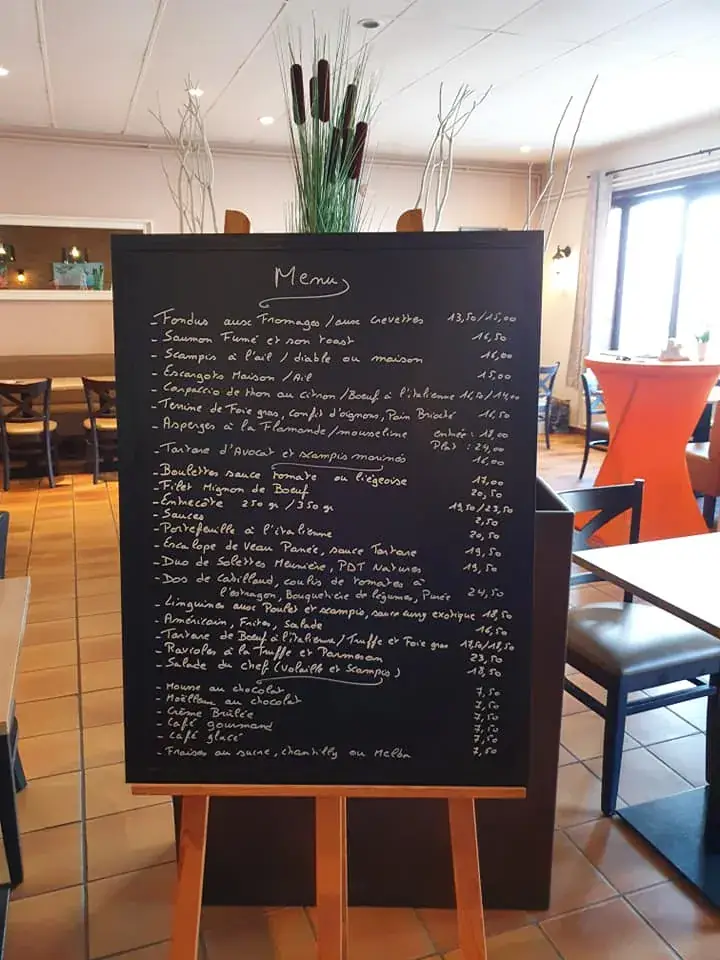 Menu
- Fondus aux Fromages / aux crevettes 13,50/15,00
- Saumon Fumé et son toast 16,50
- Scampis à l'ail / diable ou maison 16,00
- Escargots Maison / Ail 15,00
- Carpaccio de thon au citron / Boeuf à l'italienne 16,50/14,00
- Terrine de Foie gras, confit d'oignons, Pain Brioché 16,50
- Asperges à la Flamande/mousseline entrée : 18,00
Plat : 24,00
- Tartare d'Avocat et scampis marinés 16,00
- Boulettes sauce tomate ou liégeoise 17,00
- Filet Mignon de Boeuf 20,50
- Entrecôte 250 gr / 350 gr 19,50/23,50
- Sauces 2,50
- Portefeuille à l'italienne 20,50
- Escalope de Veau Panée, sauce Tartare 19,50
- Duo de Solettes Meunière, PDT Natures 19,50
- Dos de Cabillaud, coulis de tomates à
l'estragon, Bouquetière de légumes, Purée 24,50
- Linguines aux Poulet et scampis, sauce curry exotique 18,50
- Américain, Frites, Salade 16,50
- Tartare de Boeuf à l'italienne/Truffe et Foie gras 17,50/18,50
- Ravioles à la Truffe et Parmesan 23,50
- Salade du chef (Volaille et Scampis) 18,50
- Mousse au chocolat 7,50
- Moëlleux au chocolat 7,50
- Crème Brûlée 7,50
- Café gourmand 7,50
- Café glacé 7,50
- Fraises au sucre, chantilly ou Melba 7,50